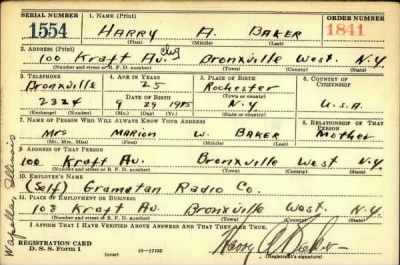 SERIAL NUMBER 1. NAME (Print) ORDER NUMBER
1554 HARRY A. BAKER 1841
(First) (Middle) (Last)
2. ADDRESS (Print)
chg
100 Kraft Av. Bronxville West. N.Y
(Number and street or R. F. D. number) (Town) (County) (State)
3. TELEPHONE 4. AGE IN YEARS 5. PLACE OF BIRTH 6. COUNTRY OF CITIZENSHIP
Bronxville 25 Rochester
DATE OF BIRTH
2324 9 29 1915 N.Y U.S.A.
(Mo.) (Day) (Yr.) (State or country)
7. NAME OF PERSON WHO WILL ALWAYS KNOW YOUR ADDRESS 8. RELATIONSHIP OF THAT PERSON
Mrs Marion W. BAKER Mother
(Mr., Mrs., Miss) (First) (Middle) (Last)
9. ADDRESS OF THAT PERSON
100 Kraft Av. Bronxville West N.Y
(Number and street or R. F. D. number) (Town) (County) (State)
10. EMPLOYER'S NAME
(Self) Gramatan Radio Co.
11. PLACE OF EMPLOYMENT OR BUSINESS
108 Kraft Av Bronxville West N.Y
(Number and street or R. F. D. number) (Town) (County) (State)
I AFFIRM THAT I HAVE VERIFIED ABOVE ANSWERS AND THAT THEY ARE TRUE.
REGISTRATION CARD
D. S. S. Form 1 (over) 16-17105 Harry A Baker
(Registrant's signature)
Wapella, Illinois